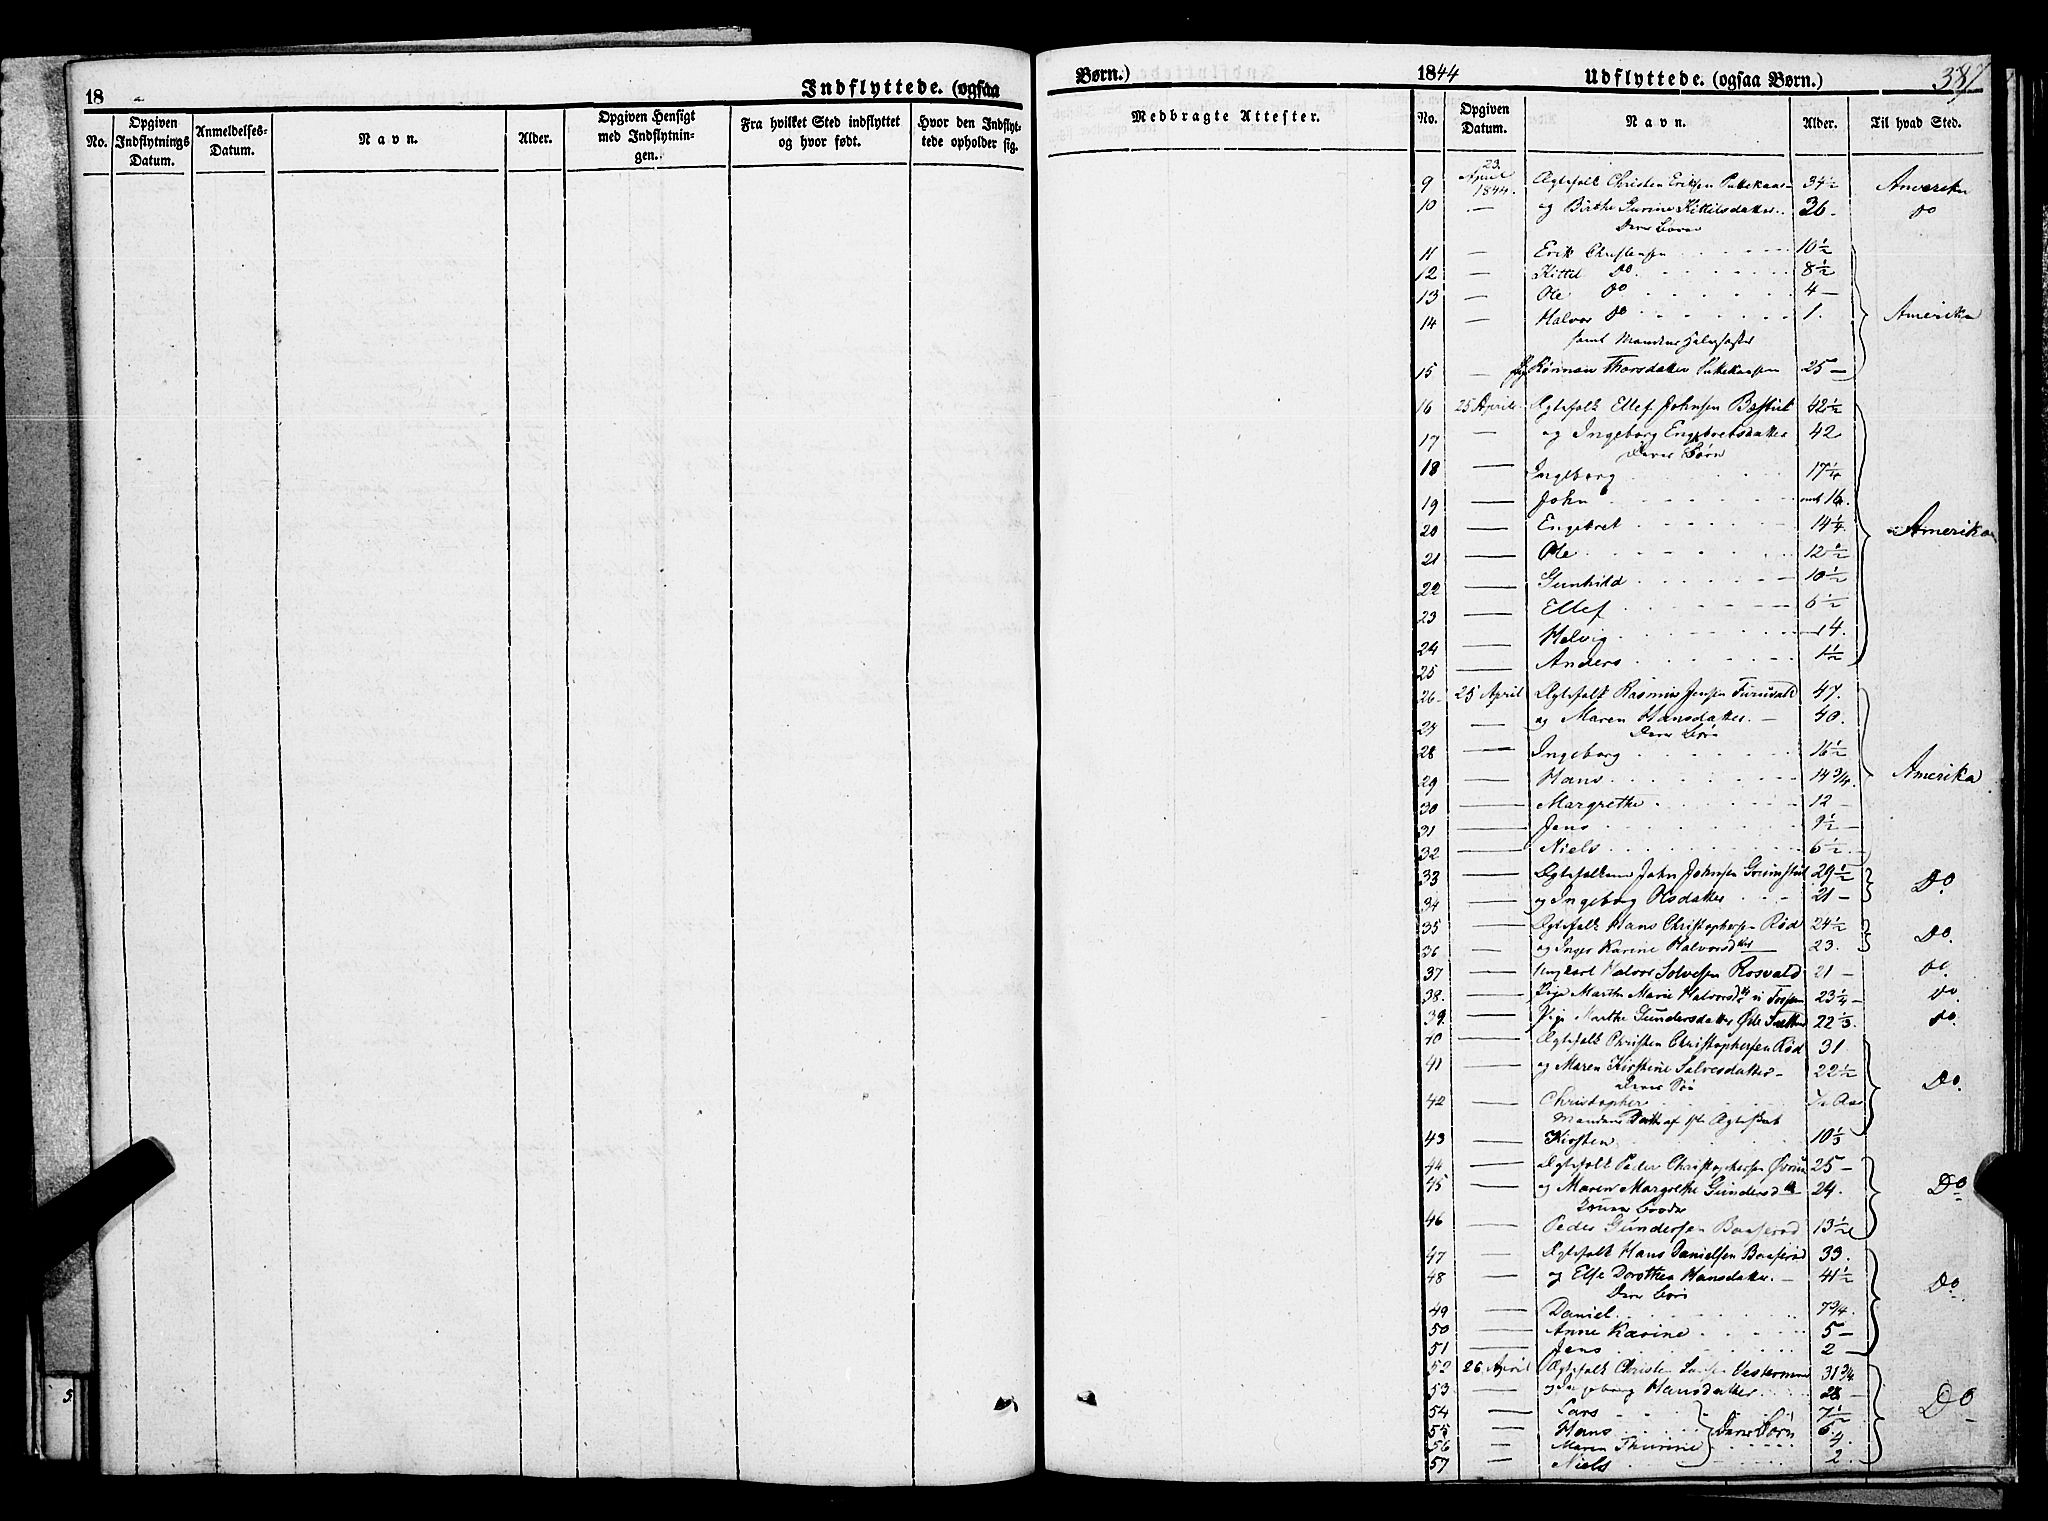 18
Indflyttede. (ogsaa
No.
Opgiven Indflytnings Datum.
Anmeldelses-Datum.
Navn.
Alder.
Opgiven Hensigt med Indflytnin-gen.
Fra hvilket Sted indflyttet og hvor født.
Hvor den Indflyt-tede opholder sig.
Børn.)
1844
Udflyttede. (ogsaa Børn.)
387
Medbragte Attester.
No.
Opgiven Datum.
Navn.
Alder.
Til hvad Sted.
9 23 April 1844. Ægtefolk Christen Eriksen 34½ Amerika
10 — og Birthe Gurine Kittilsdatter 36. do
Deres Børn
11 — Erik Christensen 10½
12 — Kittil Do 8½
13 — Ole do 4 —
14 — Halvor do 1. Amerika
samt Mandens Halvsøster
15 — Thorsdatter 25 —
16 25 April Ægtefolk Ellef Johnsen 42½
17 — og Ingeborg Engebretsdatter 42
Deres Børn
18 — Ingeborg 17¼
19 — John 16.
20 — Engebret 14¼
21 — Ole 12½ Amerika
22 — Gunhild 10½
23 — Ellef 6½
24 — Helvig 4.
25 — Anders 1½
26 25 April Ægtefolk Rasmus Jensen 47.
27 — og Maren Hansdatter. — 40.
Deres Børn
28 — Ingeborg 16½
29 — Hans 14 3/4. Amerika
30 — Margrethe 12 —
31 — Jens 9½ —
32 — Niels 6½
33 — Ægtefolkene John Johnsen 29½ Do
34 — og Ingeborg Olsdatter 21 —
35 — Ægtefolk Hans Christophersen Rød 24½ Do.
36 — og Inger Karine Halvorsdtter 23.
37 — Ungkarl Halvor Solvesen Rosvald 21 — do.
38. — Pige Marthe Marie Halvorsd. 23¼ — do
39. — Pige Marthe Gundersdatter 22⅓. do.
40 — Ægtefolk Christen Christophersen Rød 31
41 — og Maren Kirstine Salvesdatter — 22½
Deres Søn Do.
42 — Christopher ½ Aar
Mandens Datter af 1ste Ægteskab
43 — Kirsten 10⅓
44 — Ægtefolk Peder Christophersen 25 —
45 — og Maren Margrethe Gundersd. 24. Do
Broder
46 — Peder Gundersen Baaserød 13½
47 — Ægtefolk Hans Danielsen Baaserød 33.
48 — og Else Dorothea Hansdatter. — 41½
Deres Børn Do.
49 — Daniel 7¾.
50 — Anne Karine 5 —
51 — Jens 2 —
52 26 April Ægtefolk Christen 31¾
53 — og Ingeborg Hansdatter 28 —
54 — Lars 7½ Do
55 — Hans Deres Børn 6.
56 — Maren Thurine 4.
57 — Niels 2.
5